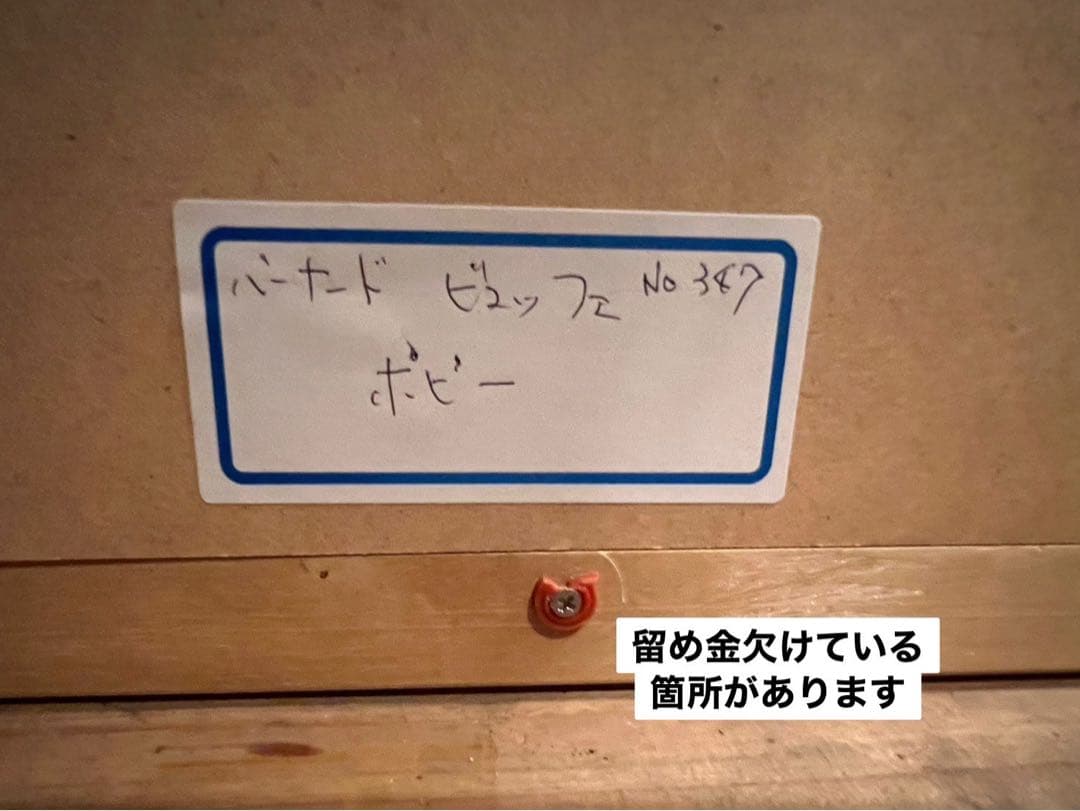 バーナード ビュッフェ No 387
ポピー
留め金欠けている
箇所があります